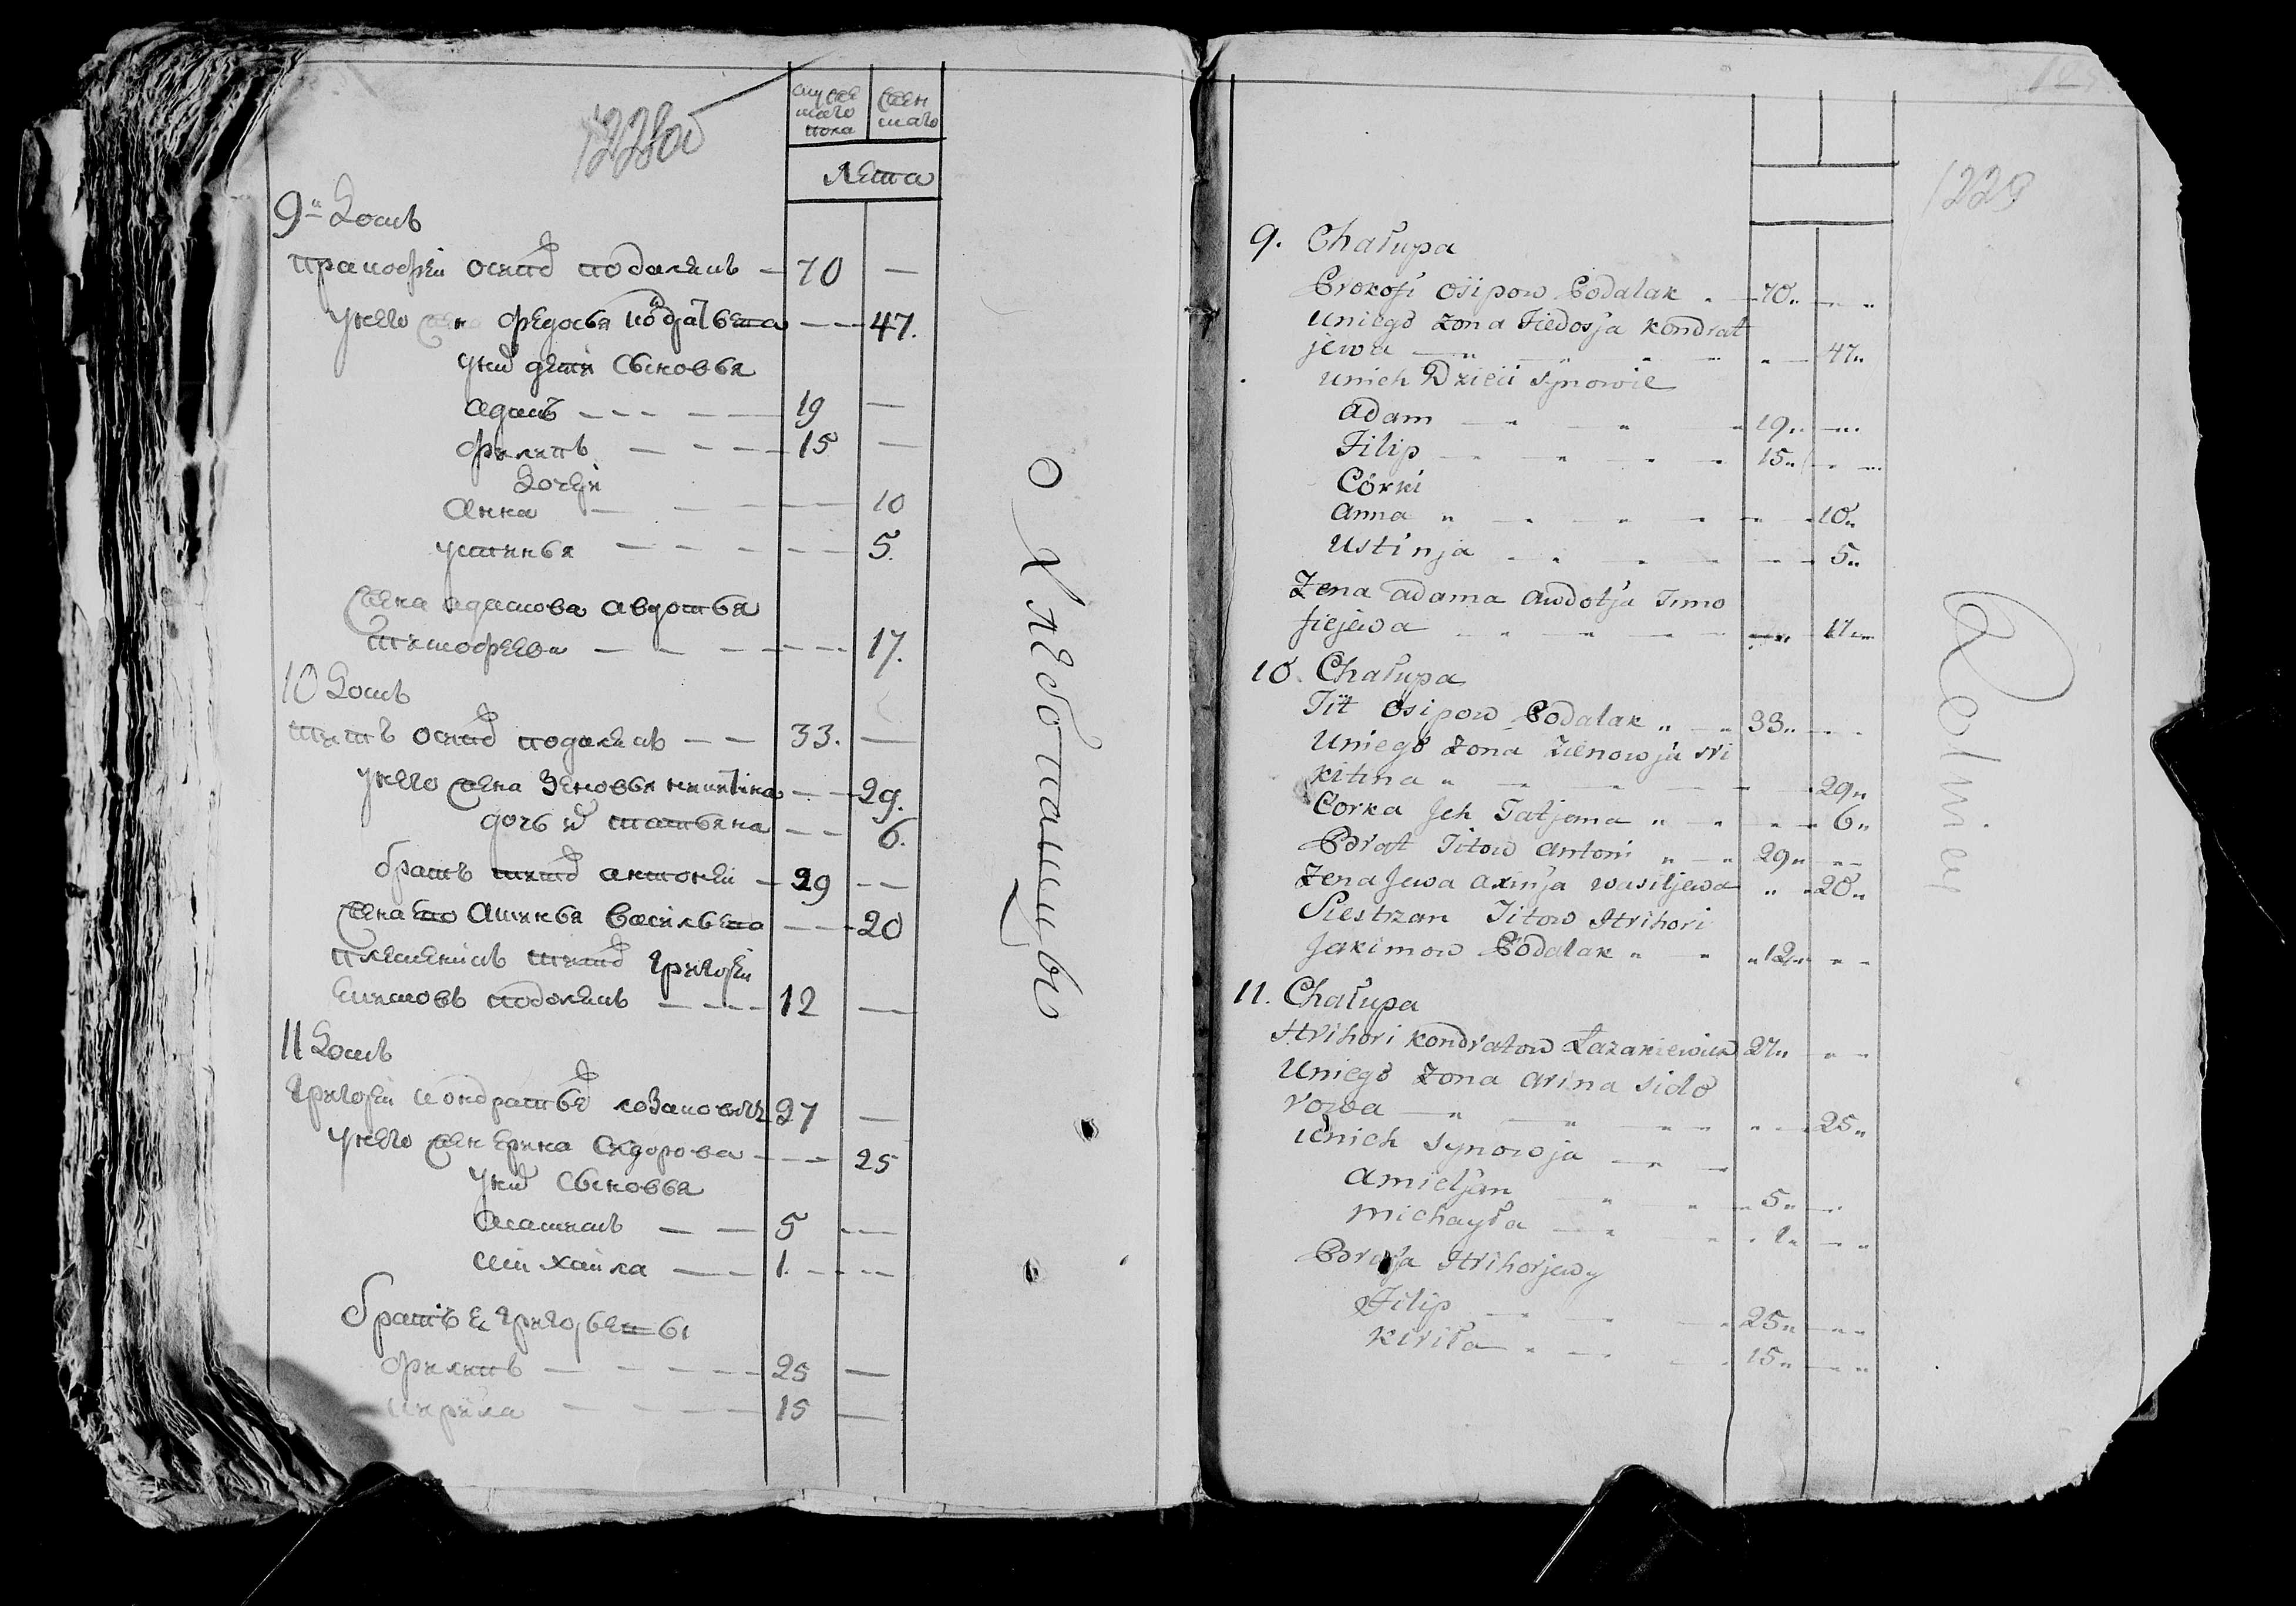 1228об
мужеска
го
пола
жен
скаго
лета
9й Домъ
Пракофеи Осипов Подалякъ 70 —
У него жена Федосья Кондратьева 47.
У них дети сыновья
Адамъ 19 —
Филипъ 15 —
Дочери
Анна 10
Устинья 5.
Жена Адамова Авдотья
Тимофеева 17.
10 Домъ
Титъ Осипов Подалякъ 33. —
У него жена Зеновья Никитина 29.
дочь их Татьяна 6.
братъ Титов Антоней 29 —
Жена ево Аксинья Васильева 20
племеникъ Титов Григорей
Екимовъ Подолякъ 12 —
11 Домъ
Григорей Кондратьев Лозакович 27 —
У него жена Ерина Сидорова 25
У них сыновья
5 —
Михайла 1. —
братья Григорьевы
Филипъ 25 —
Кирила 15 —
Хлебопашцы
1229
9. Chałupa
Prokofi Osipow Podalak 70 „
Uniego żona Fiedosja Kondrat
jewa 47 „
Unich Dzieci synowie
Adam 19 „
Filip 15 „
Córki
Anna 10 „
Ustinja 5 „
Żena Adama Awdotja Timo
fiejewa 17 „
10. Chałupa
Tit Osipow Podalak 33 „
Uniego żona Zienowja Ni
kitina 29 „
Corka Jch Tatjana 6 „
Brat Titow Antoni 29 „
Żena Jewa Axinja Wasiljewa 20 „
Siestrzan Titow Hrihori
Jakimow Podalak 12 „
11. Chałupa
Hrihori Kondratow Łazakiewicz 27 „
Uniego żona Arina Sido
rowa 25 „
Unich synowja
Amieljan 5 „
Michayła 1 „
Bratja Hrihorjewy
Filip 25 „
Kiriła 15 „
Rolniey